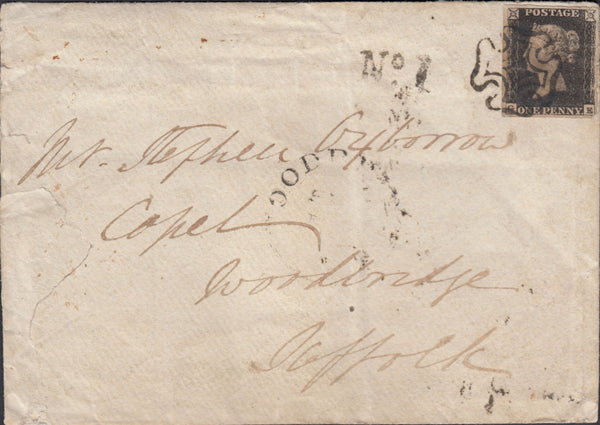 POSTAGE
ONE PENNY
No 1
Mr. Stephen Oxborrow
Capel
Woodbridge
Suffolk